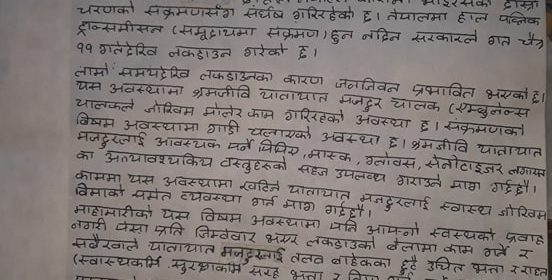 चरणको संक्रमणसँग संघर्ष गरिरहेको छ। नेपालमा हाल पब्लिक
ट्रान्समीसन (समुदायमा संक्रमण) हुन नदिन सरकारले गत चैत्र
११ गतेदेखि लकडाउन गरेको छ।
लामो समयदेखि लकडाउनका कारण जनजिवन प्रभावित भएको छ।
यस अवस्थामा श्रमजीवि यातायात मजदुर चालक (एम्बुलेन्स
चालकले जोखिम मोलेर काम गरिरहेको अवस्था छ। संक्रमणको
विषम अवस्थामा गाडी चलाएको अवस्था छ। श्रमजीवि यातायात
मजदुरलाई आवश्यक पर्ने पिपिए, मास्क, ग्लोवस, सेनीटाइजर लगायत
का अत्यावश्यकिय वस्तुहरूको सहज उपलब्ध गराउन माग गर्दछौं।
काममा यस अवस्थामा खटिने यातायात मजदुरलाई स्वास्थ्य जोखिम
विमाको समेत व्यवस्था गर्न माग गर्दछौं।
माहामारीको यस विषम अवस्थामा पनि आफ्नो स्वस्थको प्रवाह
नगरी पेसा प्रति जिम्मेवार भएर लकडाउको बेलामा काम गर्ने र
सवैखाले यातायात मजदुरलाई तलव बाहेकका छुट्टै उचित भत्ता र रासन
(स्वास्थ्यकर्मि सुरक्षाकर्मि सरह भत्ता र